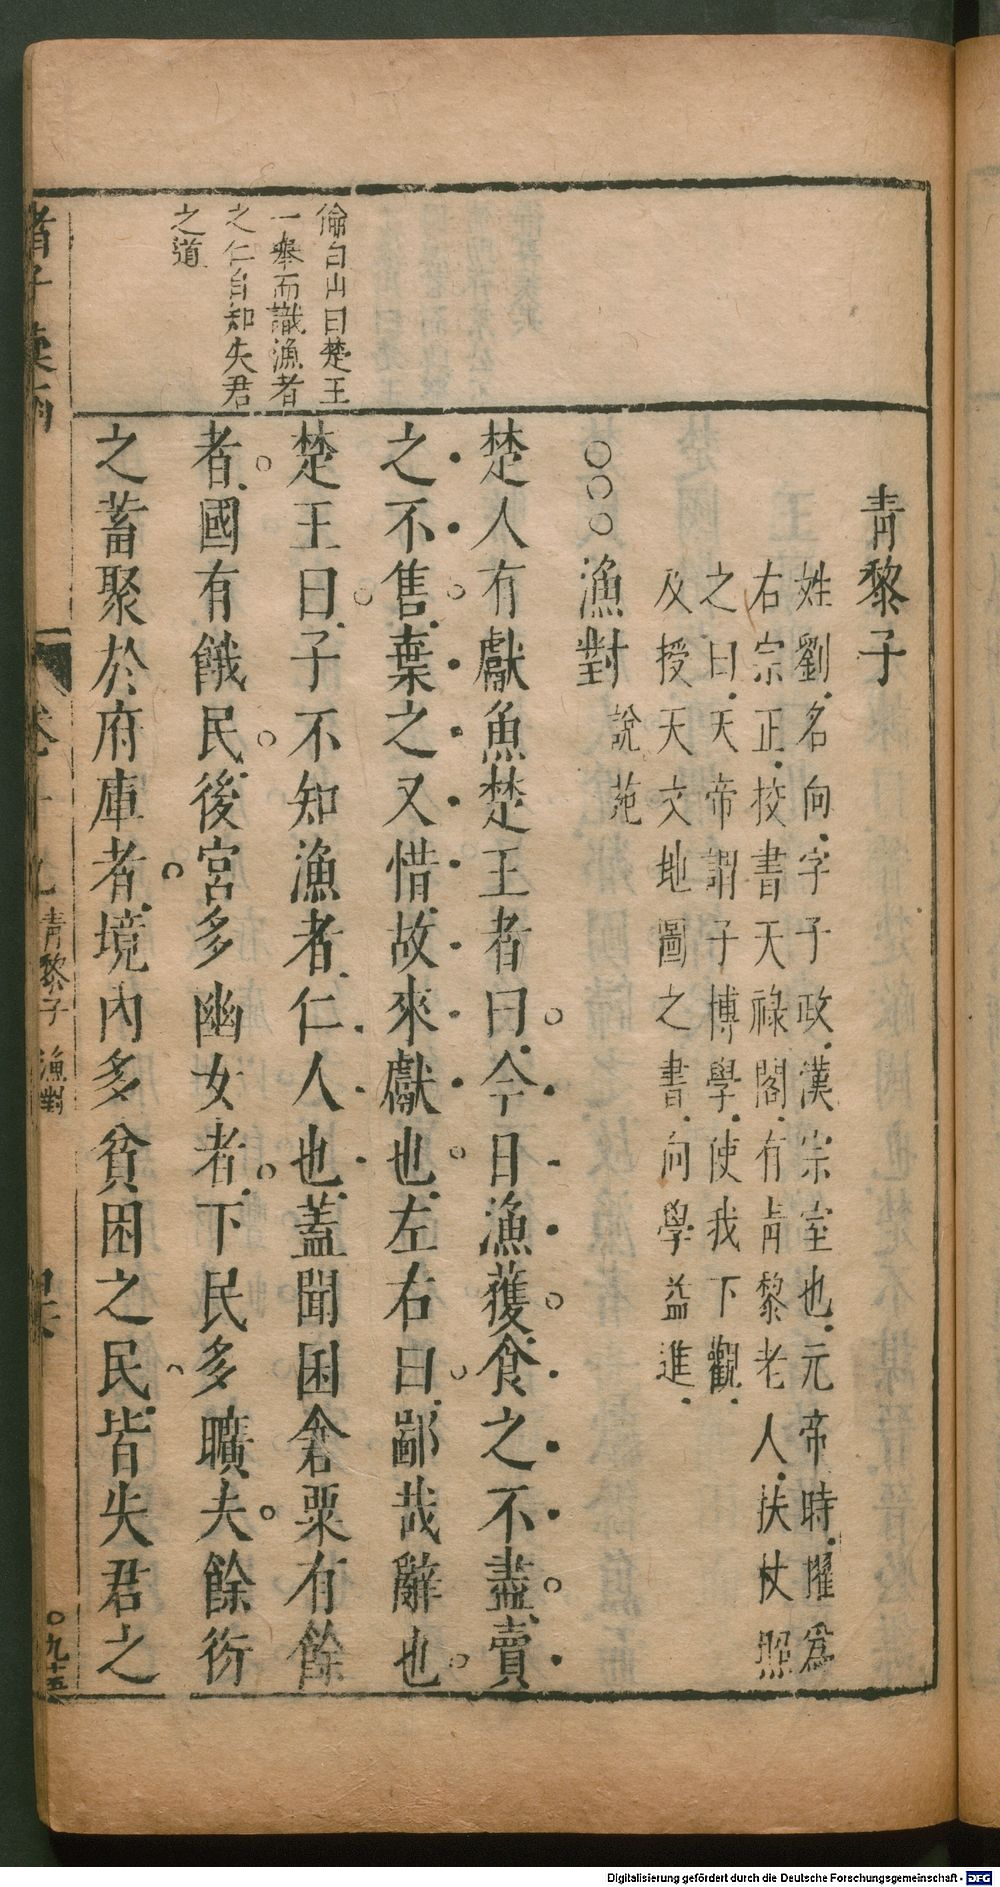 青黎子
姓劉名向字子政漢宗室也元帝時擢爲
右宗正校書天祿閣有青黎老人扶杖照
之曰天帝謂子博學使我下觀
及授天文地圖之書向學益進
○○○漁對 說苑
楚人有獻魚楚王者曰今日漁獲食之不盡賣
之不售棄之又惜故來獻也左右曰鄙哉辭也
楚王曰子不知漁者仁人也蓋聞囷倉粟有餘
者國有餓民後宮多幽女者下民多曠夫餘衍
之蓄聚於府庫者境內多貧困之民皆失君之
偷白山曰楚王
一舉而識漁者
之仁自知失君
之道
諸子彙函
卷十九 青黎子 漁對
○九十五
Digitalisierung gefördert durch die Deutsche Forschungsgemeinschaft - DFG